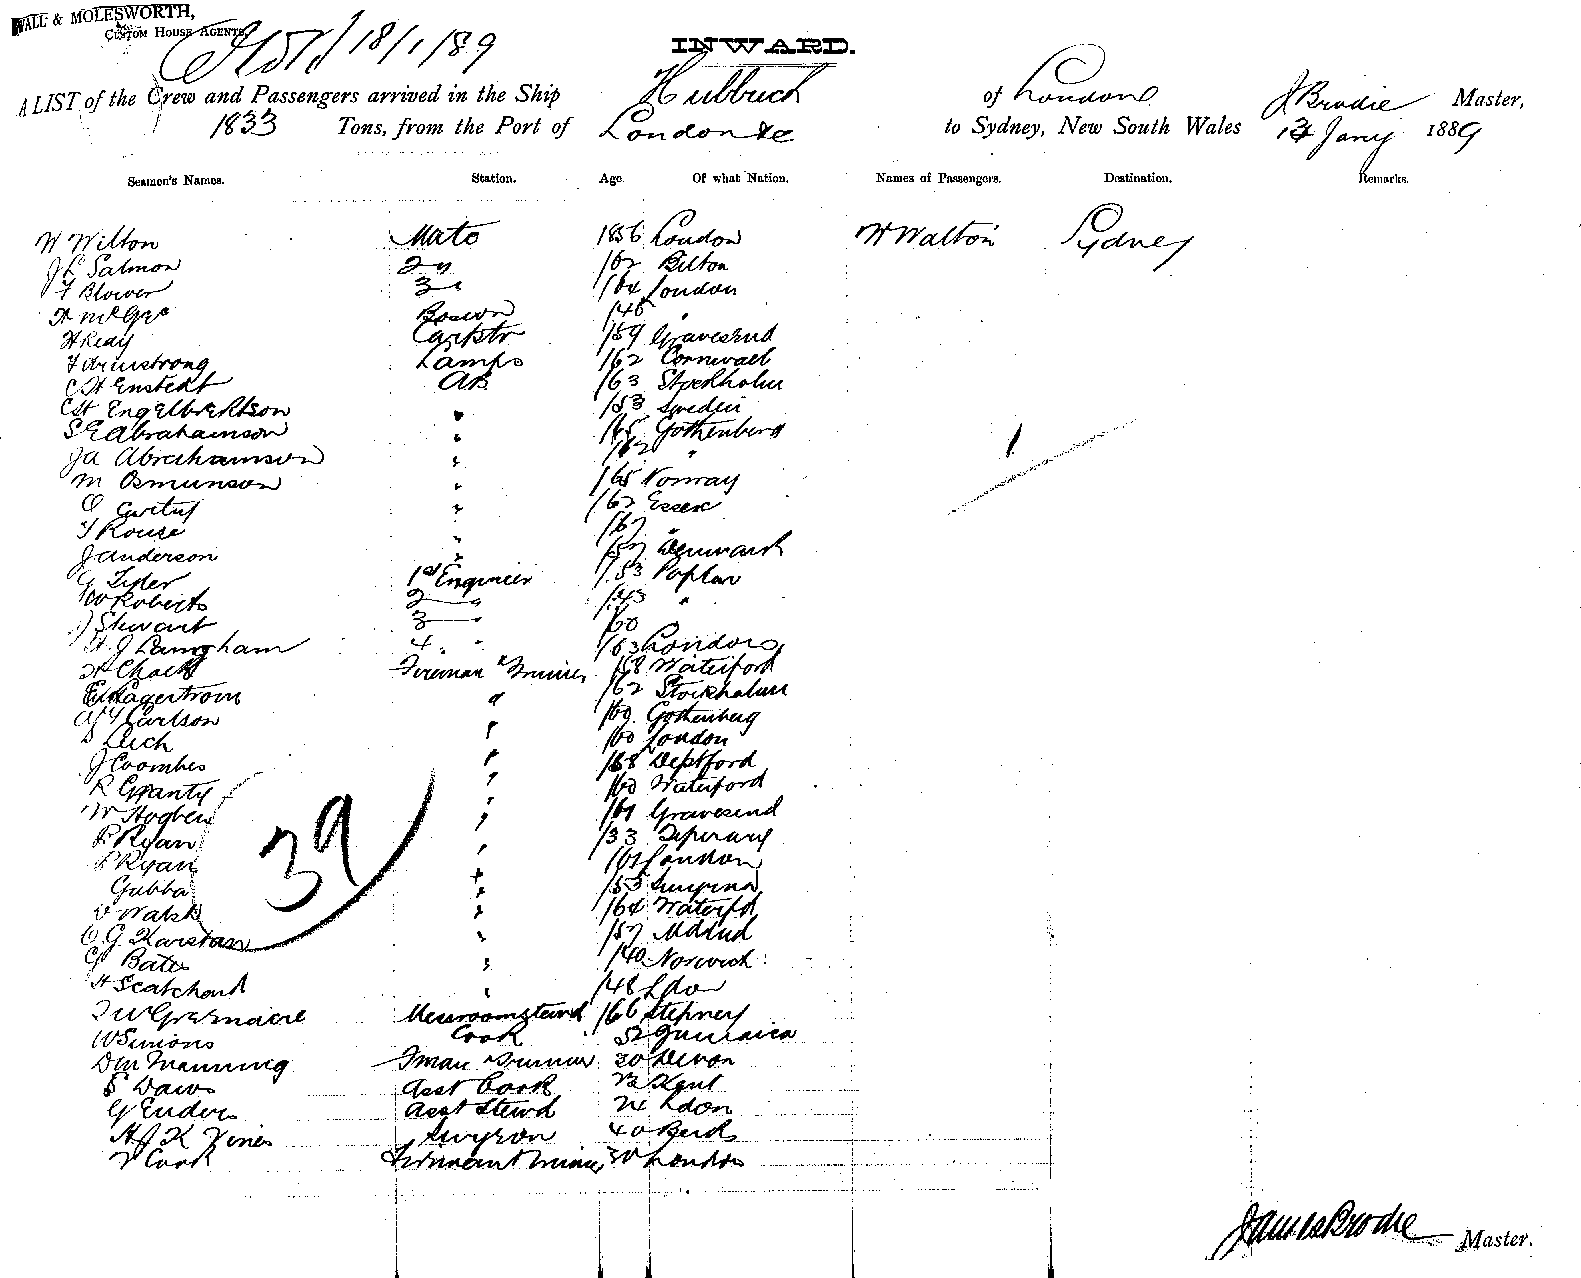 WALL & MOLESWORTH,
CUSTOM HOUSE AGENTS,
18/1/89
INWARD.
A LIST of the Crew and Passengers arrived in the Ship Hubbuck of London J Brodie Master,
1833 Tons, from the Port of London &c to Sydney, New South Wales Jany 1889
Seamen's Names. Station. Age. Of what Nation. Names of Passengers. Destination. Remarks.
W Wilton Mate 1856 London W Walton Sydney
Salmon 2 /62 Bilton
F Blower 3 /64 London
McGee Boswn /48 "
H Reay /59 Gravesend
Armstrong Lamps /62 Cornwall
C H Enstedt AB /63 Stockholm
Engelbrektson " /53 Sweden
S E Abrahamson " /65 Gothenberg
J A Abrahamson " /62 "
M Osmunson " /65 Norway
" /62 Essex
Rouse " /67 "
J Anderson " /57 Denmark
1st Engineer /53 Poplar
W Roberts 2 " /43 "
J Stewart 3 " /60
H J Langham 4 " /63 London
Fireman & Trimmer /58 Waterford
Lagerstrom " /62 Stockholm
Carlson " /69 Gothenberg
Leich " /60 London
J Coombes " /68 Deptford
R Granty " /60 Waterford
W Hogben " /64 Gravesend
P Ryan " /33 Tiperary
P Ryan " London
Gubba " /53 Smyrna
Walsh " /64 Waterfd
C G Karstan " /57
G Bates " /40 Norwich
H Scatchard " /48 Ldon
Greenacre Messroomsteward /66 Stepney
W Simons Cook 52 Jamaica
D M Manning Fman & Trimmer 30 Devon
S Daws Asst Cook 23 Kent
G Enders Asst Stewd 24 Ldon
H J K Vines Surgeon 40 Beds
Cook Fireman & Trimmer 30 London
1
39
James Brodie Master.